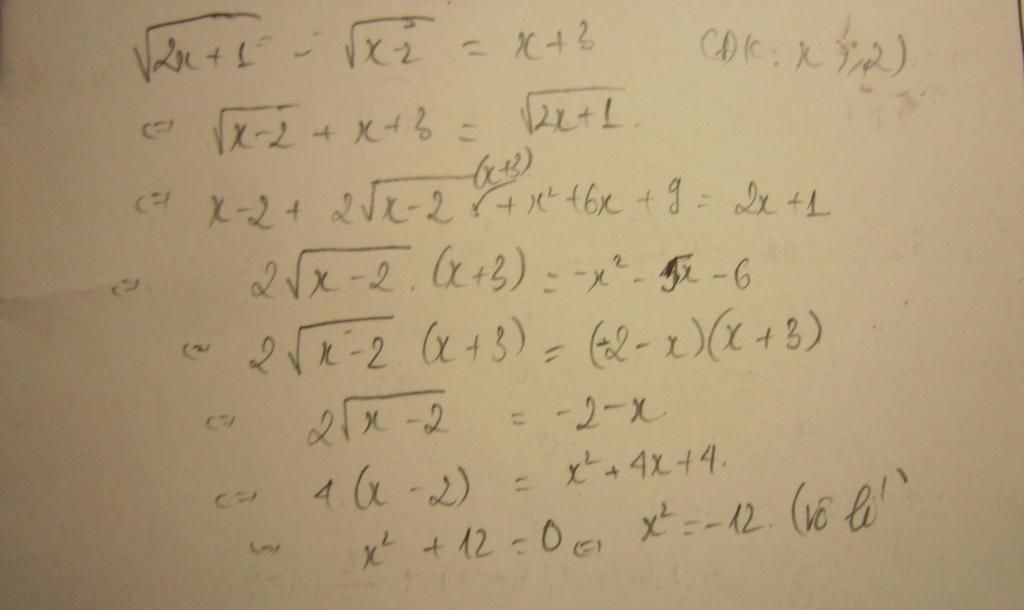 √(2x+1) - √(x-2) = x+3 (ĐK: x ≥ 2).
⇔ √(x-2) + x+3 = √(2x+1).
⇔ x-2 + 2√(x-2) (x+3) + x² + 6x + 9 = 2x+1
⇔ 2√(x-2) . (x+3) = -x² - 5x - 6
⇔ 2√(x-2) (x+3) = (-2-x)(x+3)
⇔ 2√(x-2) = -2-x
⇔ 4.(x-2) = x² + 4x + 4.
⇔ x² + 12 = 0 ⇔ x² = -12. (vô lí)